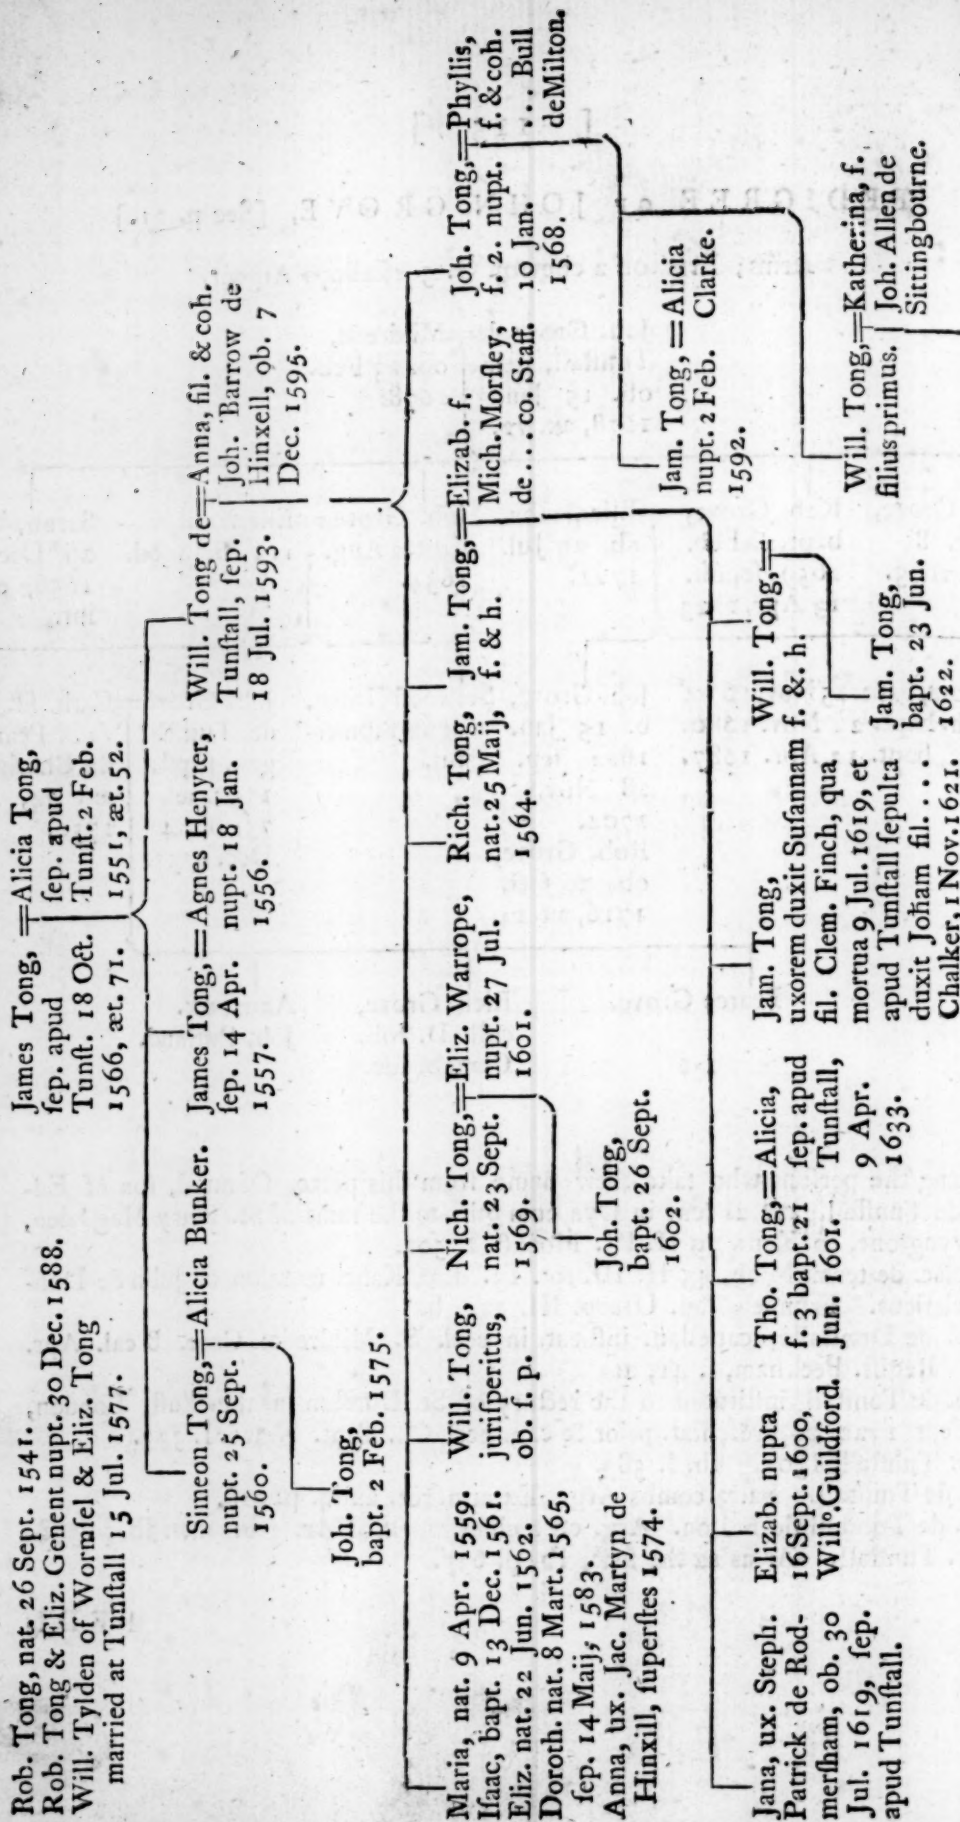 Rob. Tong, nat. 26 Sept. 1541.
Rob. Tong & Eliz. Genent nupt. 30 Dec. 1588.
Will. Tylden of Wormſel & Eliz. Tong
married at Tunſtall 15 Jul. 1577.
James Tong,
ſep. apud
Tunſt. 18 Oct.
1566, æt. 71.
=Alicia Tong,
ſep. apud
Tunſt. 2 Feb.
1551, æt. 52.
Simeon Tong,=Alicia Bunker.
nupt. 25 Sept.
1560.
James Tong,=Agnes Henyter,
ſep. 14 Apr.
1557.
nupt. 18 Jan.
1556.
Will. Tong de=Anna, fil. & coh.
Tunſtall, ſep.
18 Jul. 1593.
Joh. Barrow de
Hinxell, ob. 7
Dec. 1595.
Joh. Tong,
bapt. 2 Feb. 1575.
Maria, nat. 9 Apr. 1559.
Iſaac, bapt. 13 Dec. 1561.
Eliz. nat. 22 Jun. 1562.
Doroth. nat. 8 Mart. 1565,
ſep. 14 Maij, 1583.
Anna, ux. Jac. Martyn de
Hinxill, ſuperſtes 1574.
Will. Tong,
juriſperitus,
ob. ſ. p.
Nich. Tong,=Eliz. Warrope,
nat. 23 Sept.
1569.
nupt. 27 Jul.
1601.
Rich. Tong,
nat. 25 Maij,
1564.
Jam. Tong,=Elizab. f.
f. & h.
Mich. Morſley,
de.....co. Staff.
Joh. Tong,=Phyllis,
f. 2. nupt.
10 Jan.
1568.
f. & coh.
.... Bull
de Milton.
Joh. Tong,
bapt. 26 Sept.
1602.
Jam. Tong,=Alicia
nupt. 2 Feb.
1592.
Clarke.
Will. Tong,=Katherina, f.
filius primus.
Joh. Allen de
Sittingbourne.
Jana, ux. Steph.
Patrick de Rod-
merſham, ob. 30
Jul. 1619, ſep.
apud Tunſtall.
Elizab. nupta
16 Sept. 1600,
Will. Guildford.
Tho. Tong,=Alicia,
f. 3 bapt. 2
Jun. 1601.
ſep. apud
Tunſtall,
9 Apr.
1633.
Jam. Tong,
uxorem duxit Suſannam
fil. Clem. Finch, qua
mortua 9 Jul. 1619, et
apud Tunſtall ſepulta
duxit Joham fil. . . .
Chalker, 1 Nov. 1621.
Will. Tong,=
f. & h.
Jam. Tong,
bapt. 23 Jun.
1622.